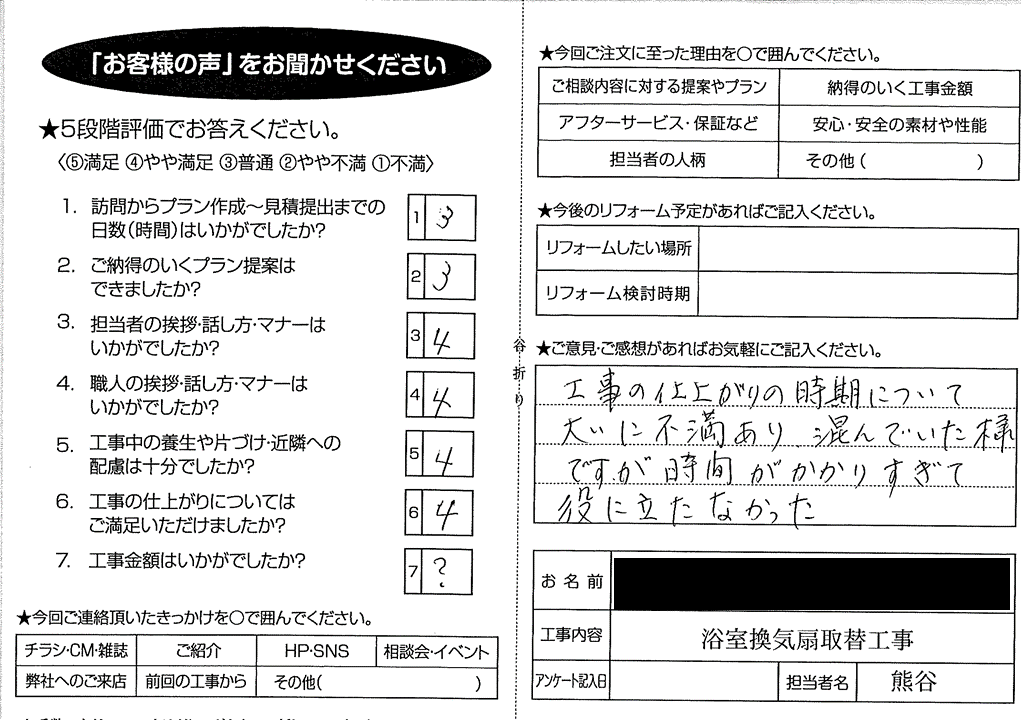 「お客様の声」をお聞かせください
★5段階評価でお答えください。
〈⑤満足 ④やや満足 ③普通 ②やや不満 ①不満〉
1. 訪問からプラン作成～見積提出までの
日数(時間)はいかがでしたか?
1 3
2. ご納得のいくプラン提案は
できましたか?
2 3
3. 担当者の挨拶・話し方・マナーは
いかがでしたか?
3 4
4. 職人の挨拶・話し方・マナーは
いかがでしたか?
4 4
5. 工事中の養生や片づけ・近隣への
配慮は十分でしたか?
5 4
6. 工事の仕上がりについては
ご満足いただけましたか?
6 4
7. 工事金額はいかがでしたか?
7 ?
★今回ご連絡頂いたきっかけを○で囲んでください。
チラシ・CM・雑誌 ご紹介 HP・SNS 相談会・イベント
弊社へのご来店 前回の工事から その他( )
谷折り
★今回ご注文に至った理由を○で囲んでください。
ご相談内容に対する提案やプラン 納得のいく工事金額
アフターサービス・保証など 安心・安全の素材や性能
担当者の人柄 その他( )
★今後のリフォーム予定があればご記入ください。
リフォームしたい場所
リフォーム検討時期
★ご意見・ご感想があればお気軽にご記入ください。
工事の仕上がりの時期について
大いに不満あり 混んでいた様
ですが時間がかかりすぎて
役に立たなかった
お名前
工事内容 浴室換気扇取替工事
アンケート記入日 担当者名 熊谷